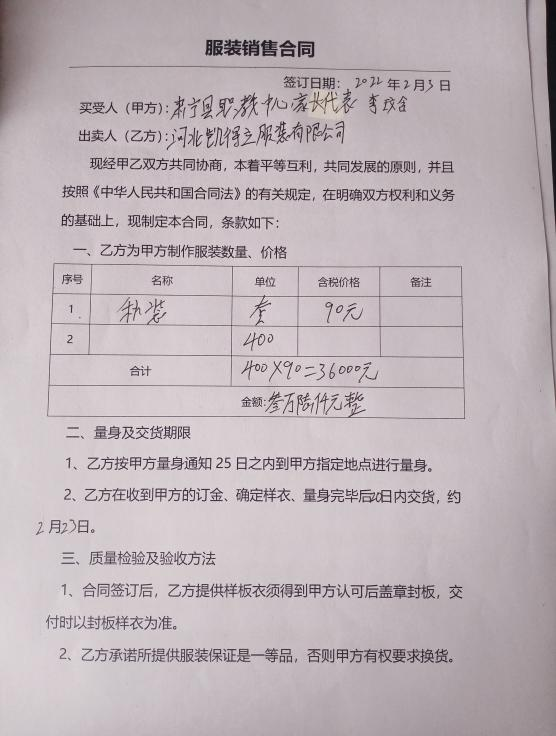 服装销售合同
签订日期：2022年2月3日
买受人（甲方）：肃宁县职教中心家长代表 李
出卖人（乙方）：河北凯得立服装有限公司
现经甲乙双方共同协商，本着平等互利，共同发展的原则，并且
按照《中华人民共和国合同法》的有关规定，在明确双方权利和义务
的基础上，现制定本合同，条款如下：
一、乙方为甲方制作服装数量、价格
序号 名称 单位 含税价格 备注
1 秋装 套 90元
2 400
合计 400×90=36000元
金额:叁万陆仟元整
二、量身及交货期限
1、乙方按甲方量身通知25日之内到甲方指定地点进行量身。
2、乙方在收到甲方的订金、确定样衣、量身完毕后20日内交货，约
2月23日。
三、质量检验及验收方法
1、合同签订后，乙方提供样板衣须得到甲方认可后盖章封板，交
付时以封板样衣为准。
2、乙方承诺所提供服装保证是一等品，否则甲方有权要求换货。